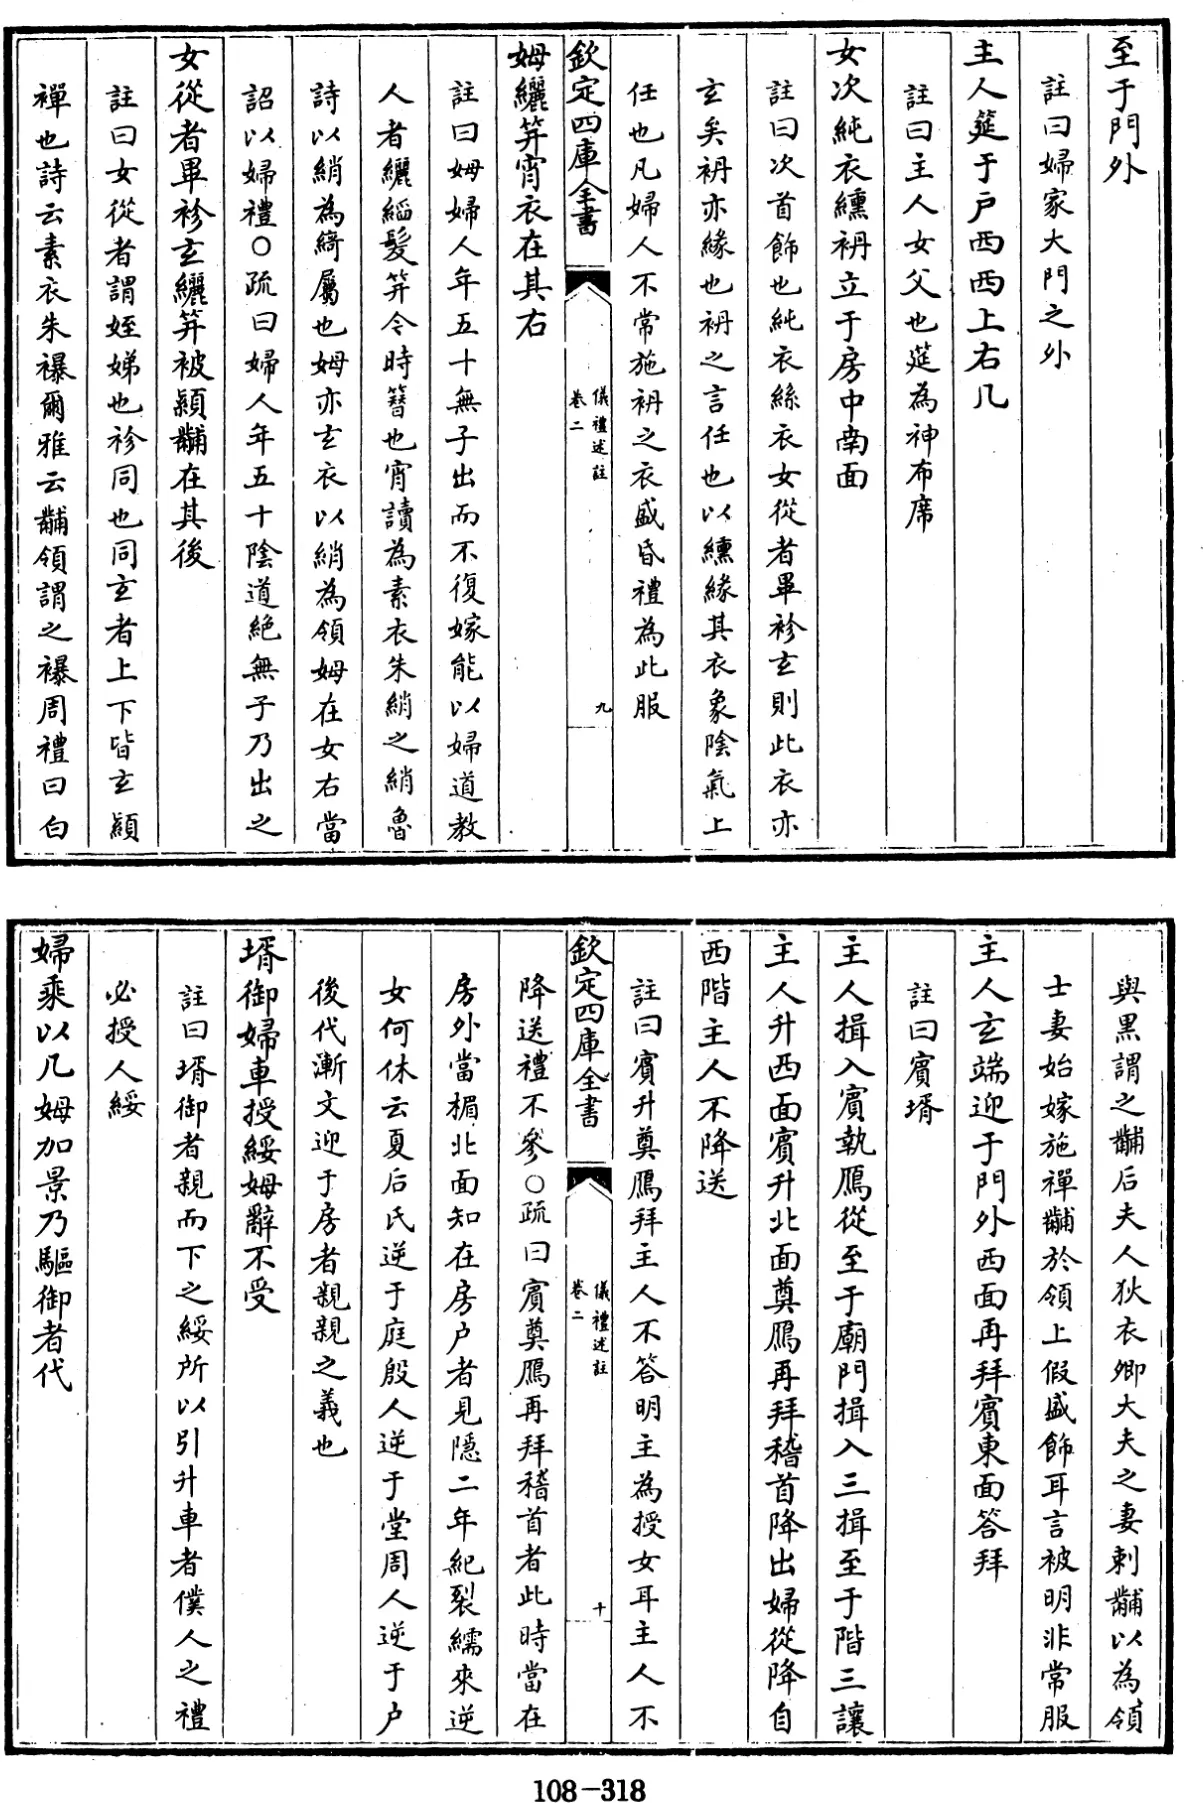 至于門外
註曰婦家大門之外
主人筵于戸西西上右几
註曰主人女父也筵為神布席
女次純衣纁袡立于房中南面
註曰次首飾也純衣絲衣女從者畢袗玄則此衣亦
玄矣袡亦緣也袡之言任也以纁緣其衣象陰氣上
任也凡婦人不常施袡之衣盛昏禮為此服
欽定四庫全書
儀禮述註
卷二
九
姆纚笄宵衣在其右
註曰姆婦人年五十無子出而不復嫁能以婦道教
人者纚縚髮笄今時簪也宵讀為素衣朱綃之綃魯
詩以綃為綺屬也姆亦玄衣以綃為領姆在女右當
詔以婦禮○疏曰婦人年五十陰道絶無子乃出之
女從者畢袗玄纚笄被顈黼在其後
註曰女從者謂姪娣也袗同也同玄者上下皆玄顈
襌也詩云素衣朱襮爾雅云黼領謂之襮周禮曰白
與黑謂之黼后夫人狄衣卿大夫之妻刺黼以為領
士妻始嫁施襌黼於領上假盛飾耳言被明非常服
主人玄端迎于門外西面再拜賓東面答拜
註曰賓壻
主人揖入賓執鴈從至于廟門揖入三揖至于階三讓
主人升西面賓升北面奠鴈再拜稽首降出婦從降自
西階主人不降送
註曰賓升奠鴈拜主人不答明主為授女耳主人不
欽定四庫全書
儀禮述註
卷二
十
降送禮不參○疏曰賓奠鴈再拜稽首者此時當在
房外當楣北面知在房户者見隱二年紀裂繻來逆
女何休云夏后氏逆于庭殷人逆于堂周人逆于户
後代漸文迎于房者親親之義也
壻御婦車授綏姆辭不受
註曰壻御者親而下之綏所以引升車者僕人之禮
必授人綏
婦乘以几姆加景乃驅御者代
108-318